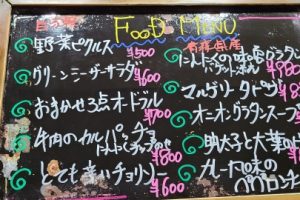 自家製
FOOD MENU
野菜ピクルス ¥500
グリーンシーザーサラダ ¥600
おまかせ3点オードブル ¥700
牛肉のカルパッチョ
にんにくチップのせ ¥800
とても辛いチョリソー ¥600
青森県産
にんにくの味噌
バゲット ¥480
マルゲリータピザ ¥880
オニオングラタンスープ
明太子と大葉の
カレー風味の
ペペロンチ